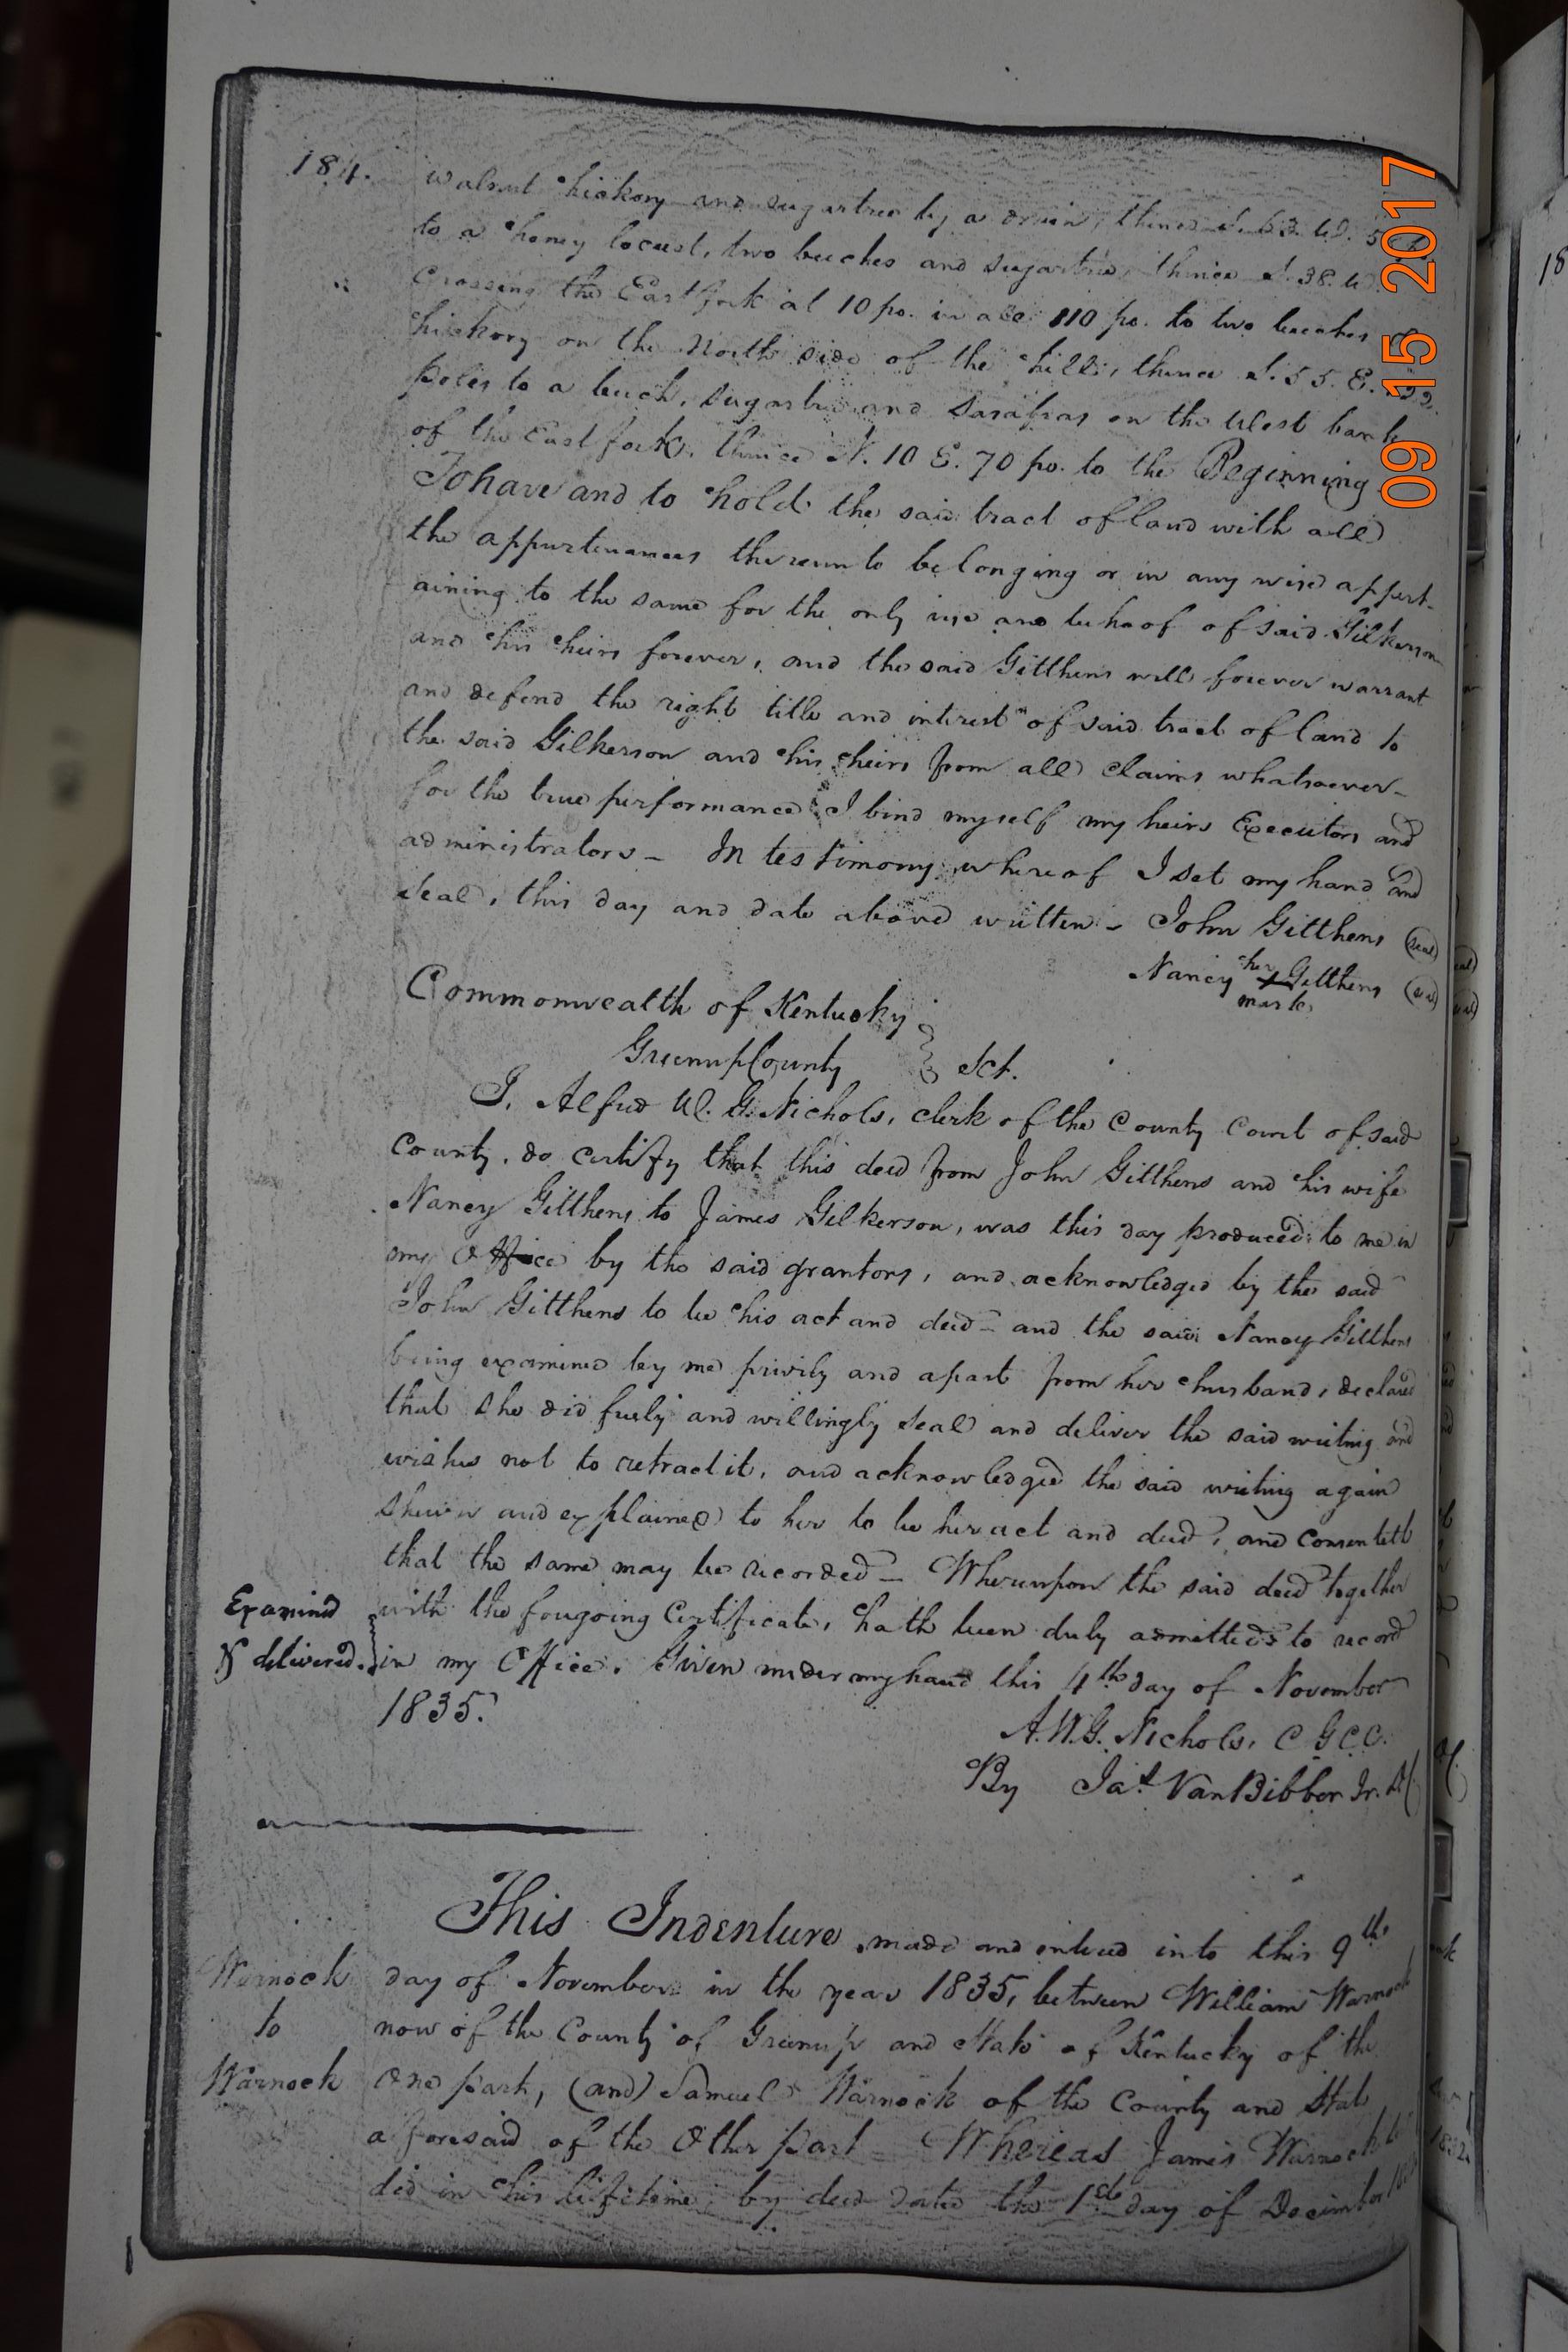 184.
walnut hickory and sugartree by a drain, thence S. 63 W. 5
to a honey locust, two beeches and sugartree, thence S. 38. W.
Crossing the East fork at 10 po. in all 110 po. to two beeches
hickory on the North side of the hill, thence S. 55. E.
poles to a beech, sugartree and Sasafras on the West bank
of the East fork, thence N. 10 E. 70 po. to the Beginning
To have and to hold the said tract of land with all
the appurtenances thereunto belonging or in any wise appert-
aining to the same for the only use and behoof of said Gilkerson
and his heirs forever, and the said Gitthens will forever warrant
and defend the right title and interest of said tract of land to
the said Gilkerson and his heirs from all claims whatsoever-
for the true performance I bind myself my heirs Executors and
administrators - In testimony whereof I set my hand and
Seal, this day and date above written - John Gitthens (seal)
Nancy her X mark Gitthens (seal)
Commonwealth of Kentucky
Greenup County } Sct.
I, Alfred W. G. Nichols, clerk of the County Court of said
County, do certify that this deed from John Gitthens and his wife
Nancy Gitthens to James Gilkerson, was this day produced to me in
my Office by the said grantors, and acknowledged by the said
John Gitthens to be his act and deed - and the said Nancy Gitthens
being examined by me privily and apart from her husband, declared
that she did freely and willingly seal and deliver the said writing and
wishes not to retract it, and acknowledged the said writing again
shewn and explained to her to be her act and deed, and consenteth
that the same may be recorded - Whereupon the said deed together
with the foregoing Certificate, hath been duly admitted to record
in my Office. Given under my hand this 4th day of November
1835.
Examined
& delivered.
A. W. G. Nichols, C G C C.
By Jas. VanBibber Jr. D C
This Indenture made and entered into this 9th
day of November in the year 1835, between William Warnock
now of the County of Greenup and State of Kentucky of the
One part, (and) Samuel Warnock of the County and State
aforesaid of the Other part - Whereas James Warnock
did in his lifetime by deed dated the 1st day of December
Warnock
to
Warnock
09 15 2017